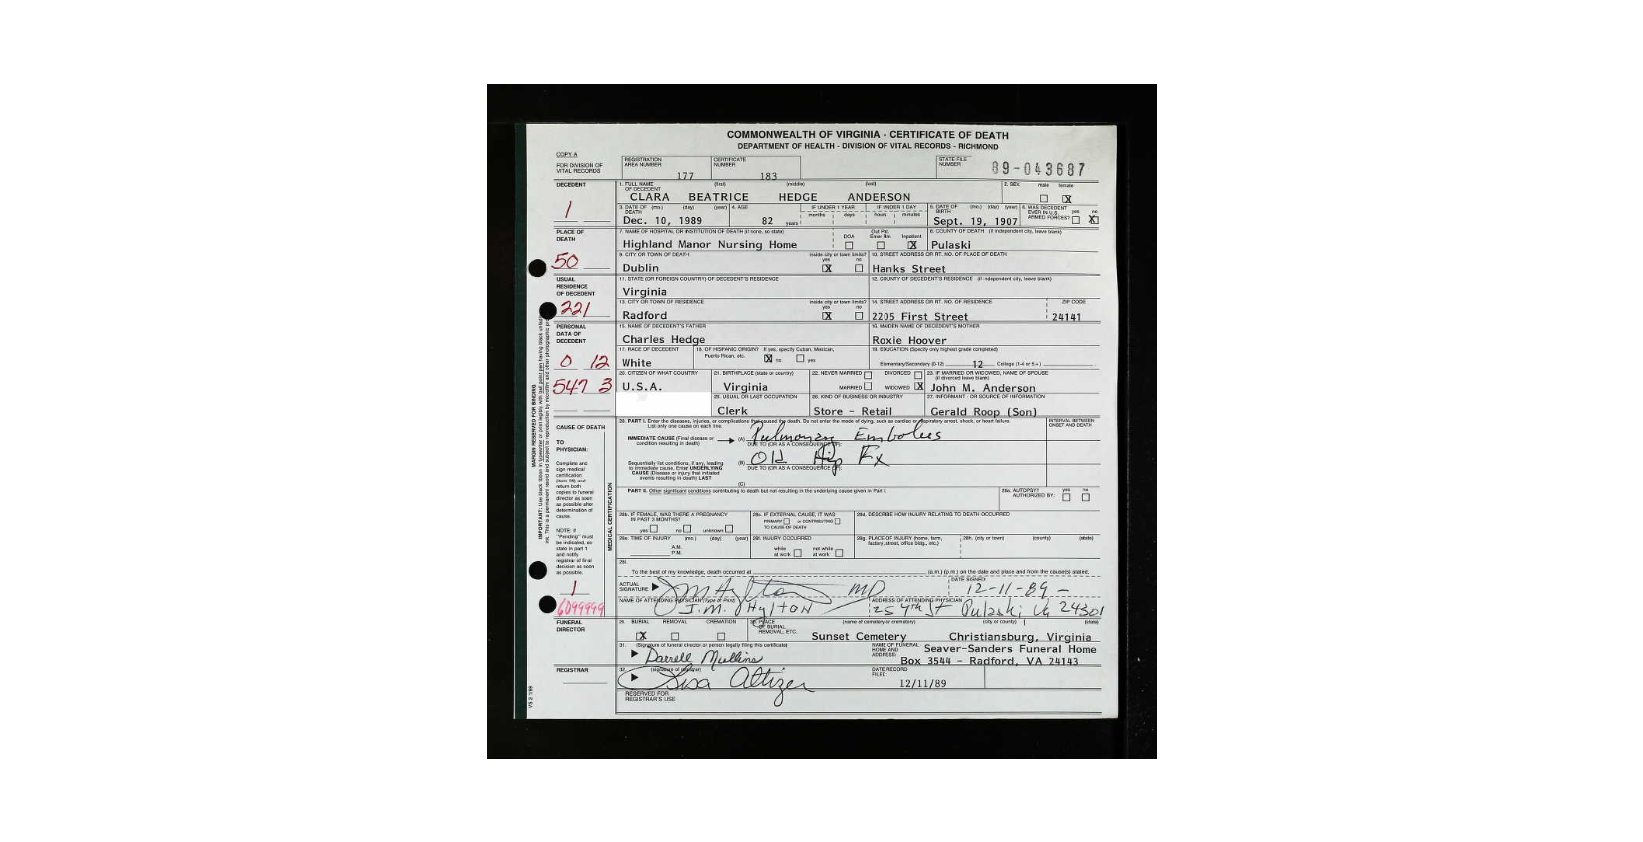 COMMONWEALTH OF VIRGINIA - CERTIFICATE OF DEATH
DEPARTMENT OF HEALTH - DIVISION OF VITAL RECORDS - RICHMOND
COPY A
FOR DIVISION OF VITAL RECORDS
REGISTRATION AREA NUMBER 177
CERTIFICATE NUMBER 183
STATE FILE NUMBER 89-043687
DECEDENT
1. FULL NAME OF DECEDENT (first) (middle) (last)
CLARA BEATRICE HEDGE ANDERSON
2. SEX male female X
1
3. DATE OF DEATH (mo.) (day) (year)
Dec. 10, 1989
4. AGE 82 years
IF UNDER 1 YEAR months days
IF UNDER 1 DAY hours minutes
5. DATE OF BIRTH (mo.) (day) (year)
Sept. 19, 1907
6. WAS DECEDENT EVER IN U.S. ARMED FORCES? yes no X
PLACE OF DEATH
50
7. NAME OF HOSPITAL OR INSTITUTION OF DEATH (if none, so state)
Highland Manor Nursing Home
DOA Out Pt. Emer Rm Inpatient X
8. COUNTY OF DEATH (if independent city, leave blank)
Pulaski
9. CITY OR TOWN OF DEATH
Dublin
inside city or town limits? yes X no
10. STREET ADDRESS OR RT. NO. OF PLACE OF DEATH
Hanks Street
USUAL RESIDENCE OF DECEDENT
221
11. STATE (OR FOREIGN COUNTRY) OF DECEDENT'S RESIDENCE
Virginia
12. COUNTY OF DECEDENT'S RESIDENCE (if independent city, leave blank)
13. CITY OR TOWN OF RESIDENCE
Radford
inside city or town limits? yes X no
14. STREET ADDRESS OR RT. NO. OF RESIDENCE
2205 First Street
ZIP CODE
24141
PERSONAL DATA OF DECEDENT
0 12
547 3
15. NAME OF DECEDENT'S FATHER
Charles Hedge
16. MAIDEN NAME OF DECEDENT'S MOTHER
Roxie Hoover
17. RACE OF DECEDENT
White
18. OF HISPANIC ORIGIN? If yes, specify Cuban, Mexican, Puerto Rican, etc. X no yes
19. EDUCATION (Specify only highest grade completed)
Elementary/Secondary (0-12) 12 College (1-4 or 5+)
20. CITIZEN OF WHAT COUNTRY
U.S.A.
21. BIRTHPLACE (state or country)
Virginia
22. NEVER MARRIED DIVORCED
MARRIED WIDOWED X
23. IF MARRIED OR WIDOWED, NAME OF SPOUSE (if divorced leave blank)
John M. Anderson
25. USUAL OR LAST OCCUPATION
Clerk
26. KIND OF BUSINESS OR INDUSTRY
Store - Retail
27. INFORMANT - OR SOURCE OF INFORMATION
Gerald Roop (Son)
CAUSE OF DEATH
TO PHYSICIAN:
Complete and sign medical certification (item 28) and return both copies to funeral director as soon as possible after determination of cause.
NOTE: If "Pending" must be indicated, so state in part 1 and notify registrar of final decision as soon as possible.
MEDICAL CERTIFICATION
28. PART I. Enter the diseases, injuries, or complications that caused the death. Do not enter the mode of dying, such as cardiac or respiratory arrest, shock, or heart failure. List only one cause on each line.
INTERVAL BETWEEN ONSET AND DEATH
IMMEDIATE CAUSE (Final disease or condition resulting in death)
(A) Pulmonary Embolus
DUE TO (OR AS A CONSEQUENCE OF):
Sequentially list conditions, if any, leading to immediate cause. Enter UNDERLYING CAUSE (Disease or injury that initiated events resulting in death) LAST
(B) Old Hip Fx
DUE TO (OR AS A CONSEQUENCE OF):
(C)
PART II. Other significant conditions contributing to death but not resulting in the underlying cause given in Part I.
28a. AUTOPSY? AUTHORIZED BY: yes no
28b. IF FEMALE, WAS THERE A PREGNANCY IN PAST 3 MONTHS? yes no unknown
28c. IF EXTERNAL CAUSE, IT WAS PRIMARY or CONTRIBUTING TO CAUSE OF DEATH
28d. DESCRIBE HOW INJURY RELATING TO DEATH OCCURRED
28e. TIME OF INJURY (mo.) (day) (year) A.M. P.M.
28f. INJURY OCCURRED while at work not while at work
28g. PLACE OF INJURY (home, farm, factory, street, office bldg., etc.)
28h. (city or town) (county) (state)
28i.
To the best of my knowledge, death occurred at (a.m.) (p.m.) on the date and place and from the cause(s) stated.
ACTUAL SIGNATURE J M Hylton MD
DATE SIGNED 12-11-89
NAME OF ATTENDING PHYSICIAN (Type or Print) J.M. HYLTON
ADDRESS OF ATTENDING PHYSICIAN 25 4th St Pulaski, Va 24301
1
6099999
FUNERAL DIRECTOR
29. BURIAL X REMOVAL CREMATION
30. PLACE OF BURIAL, REMOVAL, ETC. (name of cemetery or crematory) (city or county) (state)
Sunset Cemetery Christiansburg, Virginia
31. (Signature of funeral director or person legally filing this certificate)
Darrell Mullins
NAME OF FUNERAL HOME AND ADDRESS:
Seaver-Sanders Funeral Home
Box 3544 - Radford, VA 24143
REGISTRAR
32. (signature of registrar)
Lisa Altizer
DATE RECORD FILED:
12/11/89
RESERVED FOR REGISTRAR'S USE
MARGIN RESERVED FOR BINDING